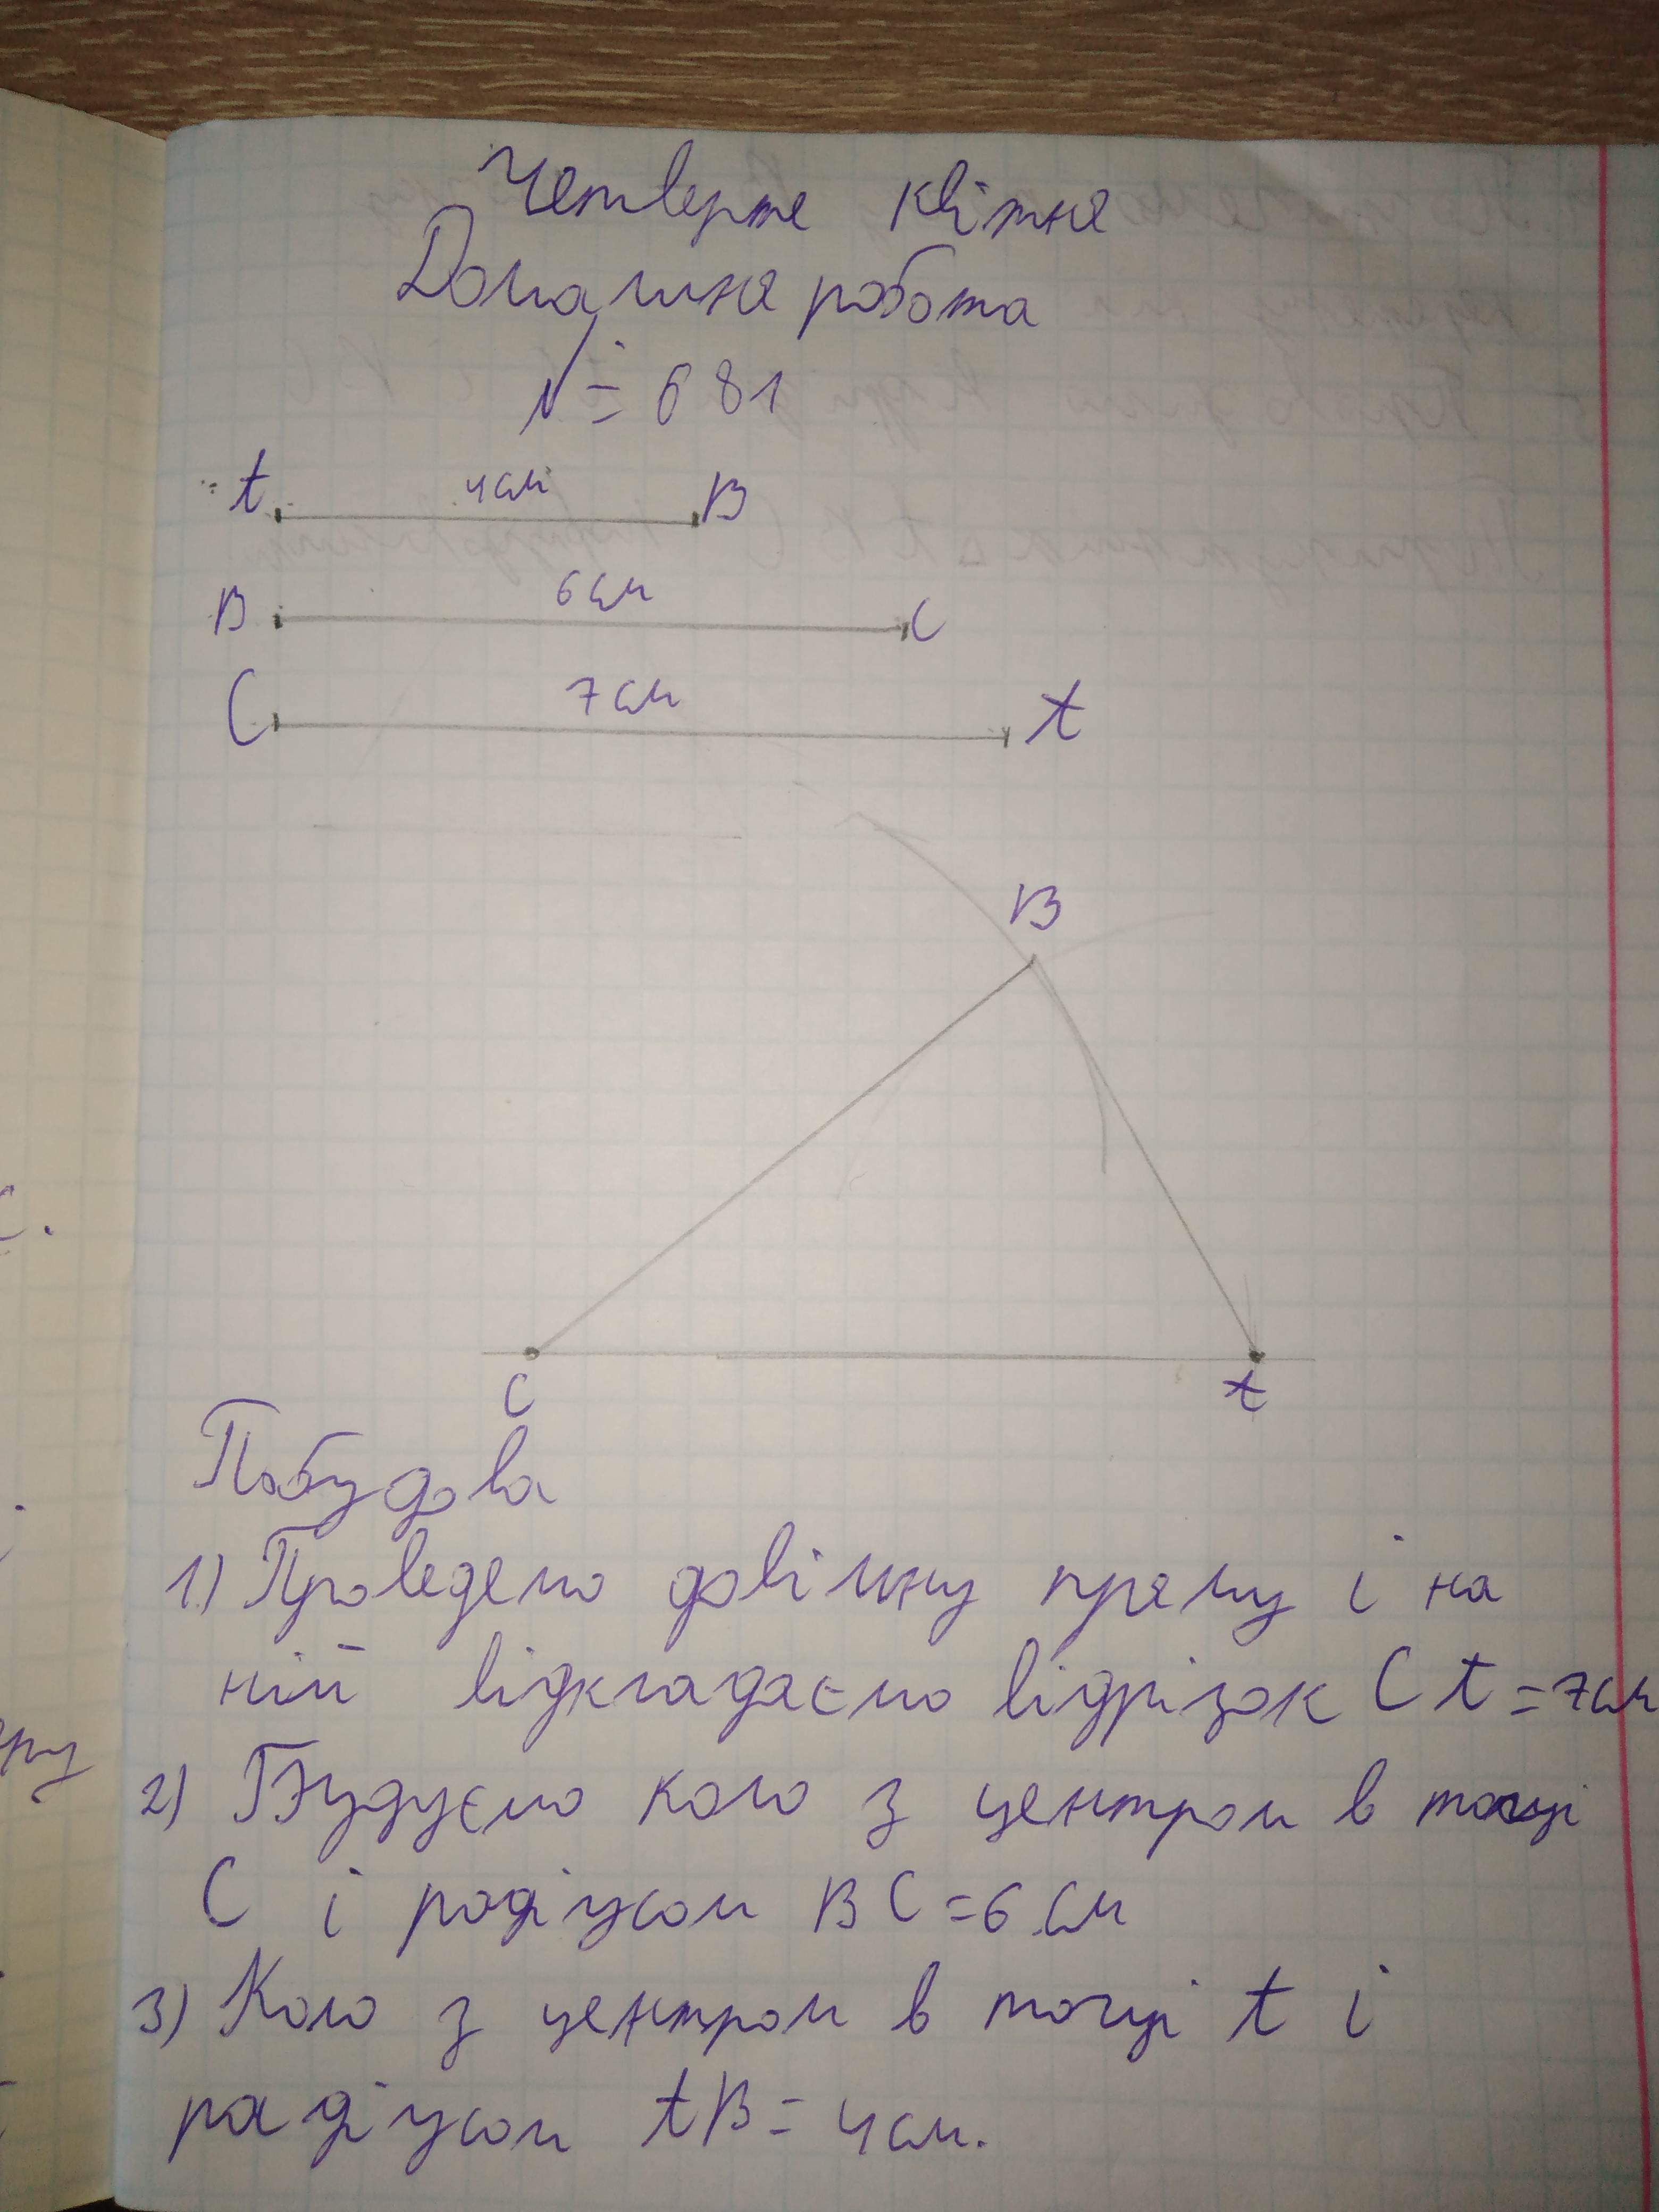 Четверте квітня
Домашня робота
№ 681
t 4см B
B 6 см C
C 7 см t
B
C t
Побудова
1) Проведемо довільну пряму і на
ній відкладаємо відрізок Ct = 7см
2) Будуємо коло з центром в точці
C і радіусом BC = 6 см
3) Коло з центром в точці t і
радіусом tB = 4см.